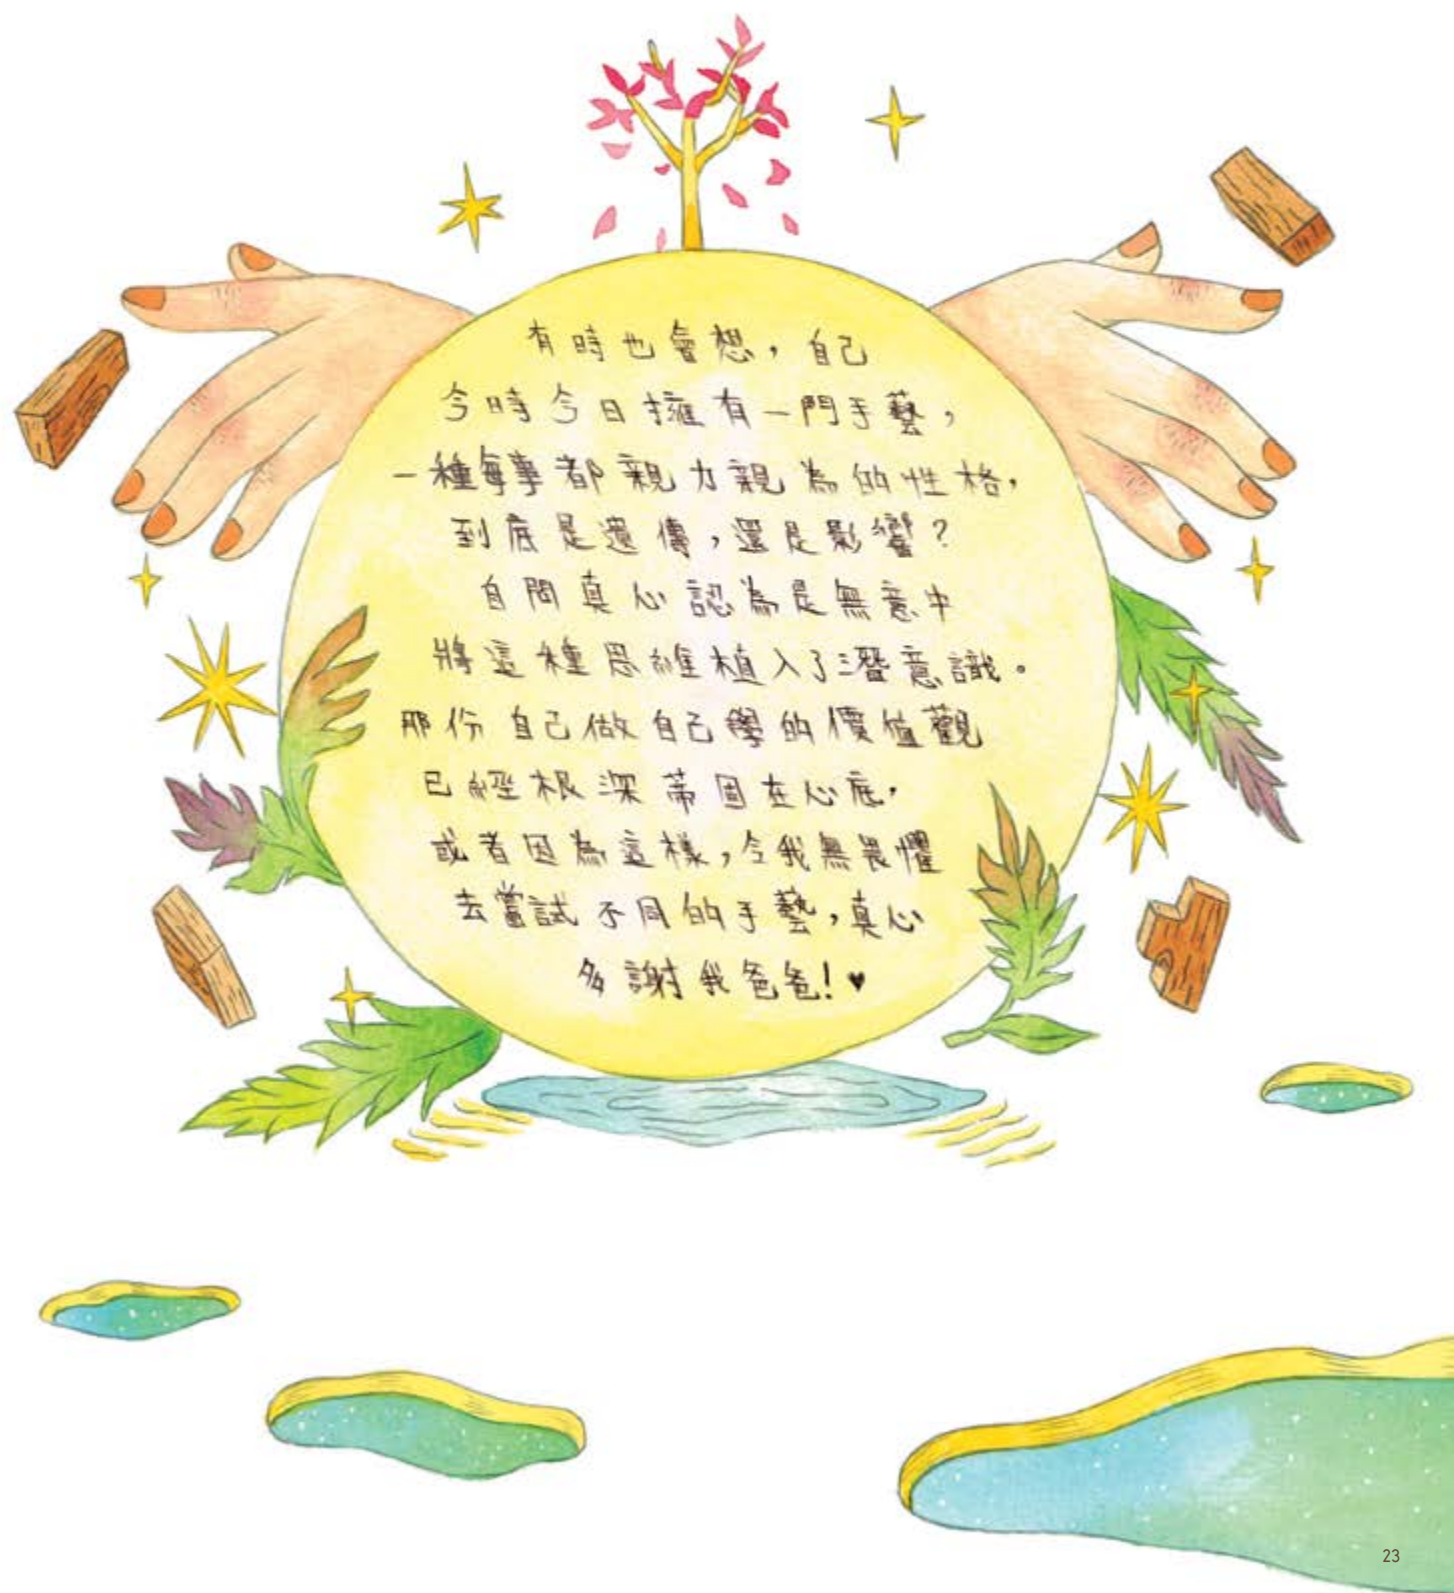 有時也會想，自己
今時今日擁有一門手藝，
一種每事都親力親為的性格，
到底是遺傳，還是影響？
自問真心認為是無意中
將這種思維植入了潛意識。
那份自己做自己學的價值觀
已經根深蒂固在心底，
或者因為這樣，令我無畏懼
去嘗試不同的手藝，真心
多謝我爸爸！♥
23